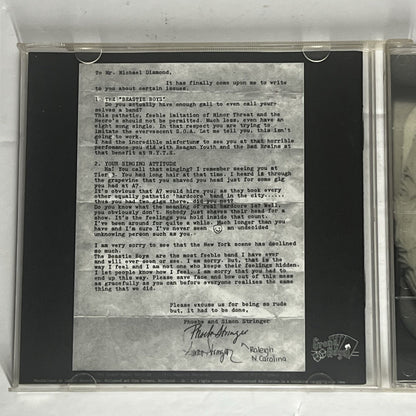 To Mr. Michael Diamond,
It has finally come upon me to write
to you about certain issues.
1. THE "BEASTIE BOYS"
Do you actually have enough gall to even call your-
selves a band?
This pathetic, feeble imitation of Minor Threat and the
Necro's should not be permitted. Much less, even have an
eight song single. In that respect you are trying to
imitate the evervescent G.O.A. Let me tell you, this isn't
going to work.
I had the incredible misfortune to see you at that horrible
performance you did with Reagan Youth and the Bad Brains at
that benefit at N.Y.T.E.
2. YOUR SINGING ATTITUDE
Ha! You call that singing? I remember seeing you at
Tier 3. You had long hair at that time. I heard is through
the grapevine that you shaved you head just for some gig
you had at A7.
It's obvious that A7 would hire you, as they book every
other equally pathetic 'hardcore' band in the city.....
thus you had the gig there, did you not?
Do you know what the meaning of real hardcore is? Well,
you obviously don't. Nobody just shaves their head for a
show. It's the feelings you hold inside that count.
I've been around for quite a while. Much longer than you
have and I'm sure I've never mean an undecided
unknowing person such as you.
I am very sorry to see that the New York scene has declined
so much.
The Beastie Boys are the most feeble band I have ever
and will ever seen or see. I am sorry. But, that is the
way I feel and I am not one who keeps their feelings hidden.
I let people know how I feel. I am sorry that you had to
end up this way. Please save face and bow out of this mess
as gracefully as you can before everyone realises the same
thing that we did.
Please excuse us for being so rude
but, it had to be done.
Phoebe and Simon Stringer
Phoebe Stringer
Simon Stringer
Raleigh
N. Carolina
Grand Royal